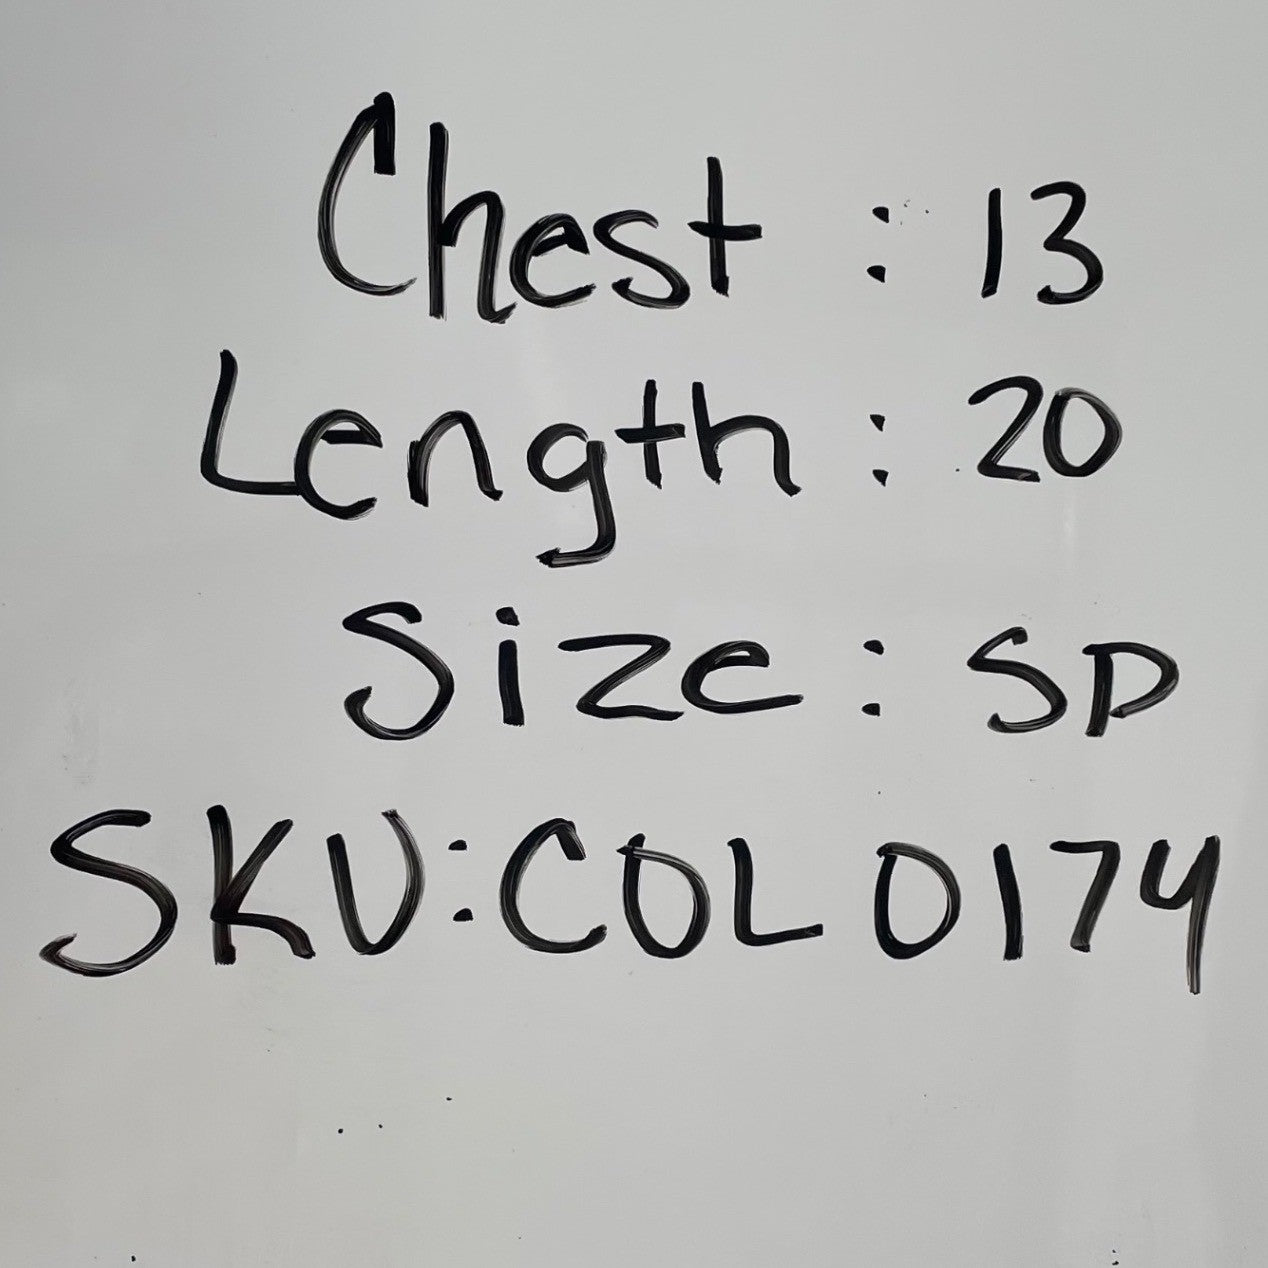 Chest : 13
Length : 20
Size : SP
SKU:COL 0174